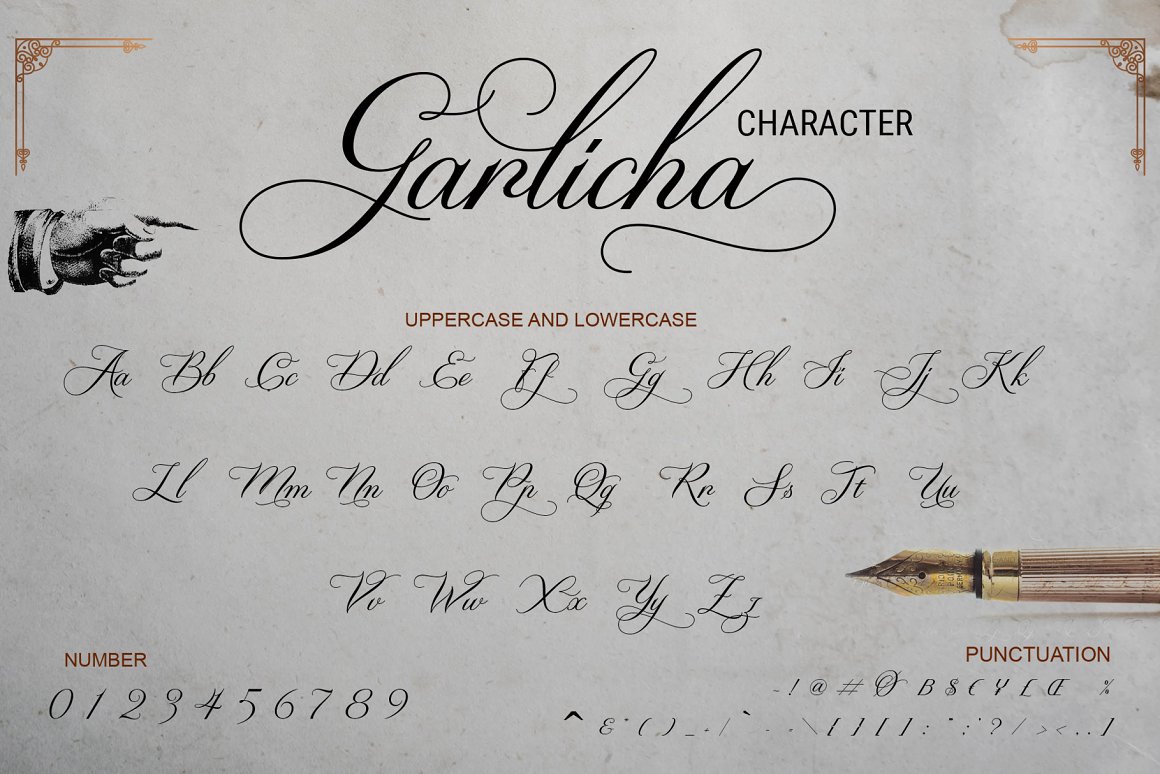 Garlicha CHARACTER
UPPERCASE AND LOWERCASE
Aa Bb Cc Dd Ee Ff Gg Hh Ii Jj Kk
Ll Mm Nn Oo Pp Qq Rr Ss Tt Uu
Vv Ww Xx Yy Zz
NUMBER
0 1 2 3 4 5 6 7 8 9
PUNCTUATION
~ ! @ # Ø B $ € ¥ £ Œ %